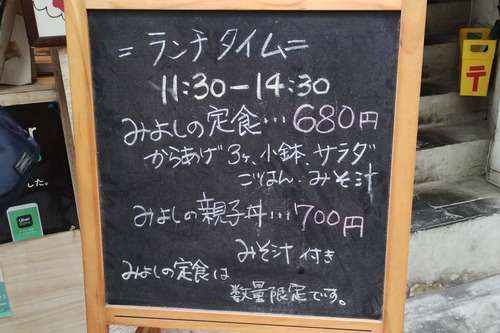 =ランチタイム=
11:30-14:30
みよしの定食…680円
からあげ3ヶ、小鉢、サラダ
ごはん、みそ汁
みよしの親子丼…700円
みそ汁付き
みよしの定食は
数量限定です。
した。
Uber
〒